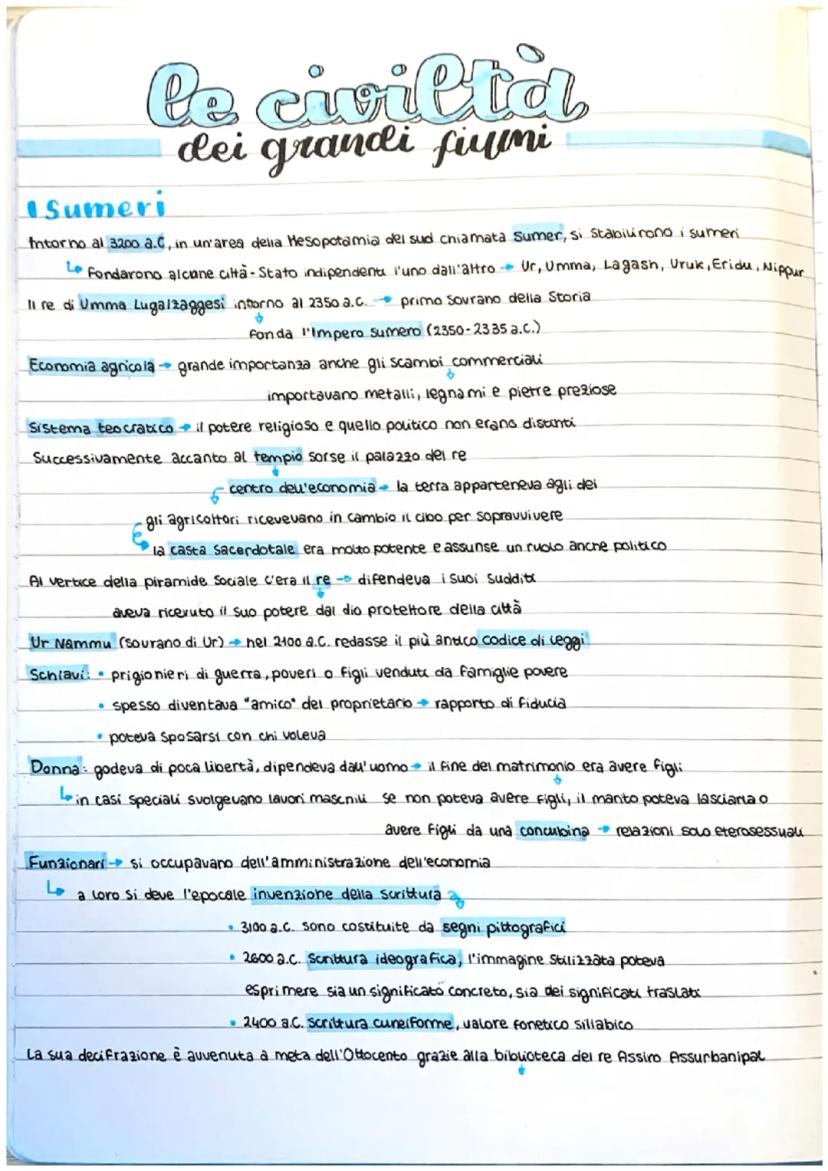 le civiltà
dei grandi fiumi
I Sumeri
Intorno al 3200 a.C, in un'area della Mesopotamia del sud chiamata Sumer, si stabilirono i sumeri
↳ Fondarono alcune città-Stato indipendenti l'uno dall'altro → Ur, Umma, Lagash, Uruk, Eridu, Nippur
Il re di Umma Lugalzaggesi intorno al 2350 a.C. → primo sovrano della Storia
fonda l'Impero sumero (2350-2335 a.C.)
Economia agricola → grande importanza anche gli scambi commerciali
importavano metalli, legnami e pietre preziose
Sistema teocratico → il potere religioso e quello politico non erano distanti
Successivamente accanto al tempio sorse il palazzo del re
centro dell'economia → la terra apparteneva agli dei
gli agricoltori ricevevano in cambio il cibo per sopravvivere
la casta sacerdotale era molto potente e assunse un ruolo anche politico
Al vertice della piramide sociale c'era il re → difendeva i suoi sudditi
aveva ricevuto il suo potere dal dio protettore della città
Ur Nammu (sovrano di Ur) → nel 2100 a.C. redasse il più antico codice di leggi
Schiavi: • prigionieri di guerra, poveri o figli venduti da famiglie povere
• spesso diventava "amico" del proprietario → rapporto di fiducia
• poteva sposarsi con chi voleva
Donna: godeva di poca libertà, dipendeva dall'uomo → il fine del matrimonio era avere figli
↳ in casi speciali svolgevano lavori maschili se non poteva avere figli, il marito poteva lasciarla o
avere figli da una concubina → relazioni solo eterosessuali
Funzionari → si occupavano dell'amministrazione dell'economia
↳ a loro si deve l'epocale invenzione della scrittura
• 3100 a.C. sono costituite da segni pittografici
• 2600 a.C. scrittura ideografica, l'immagine stilizzata poteva
esprimere sia un significato concreto, sia dei significati traslati
• 2400 a.C. scrittura cuneiforme, valore fonetico sillabico
La sua decifrazione è avvenuta a meta dell'Ottocento grazie alla biblioteca del re Assiro Assurbanipal